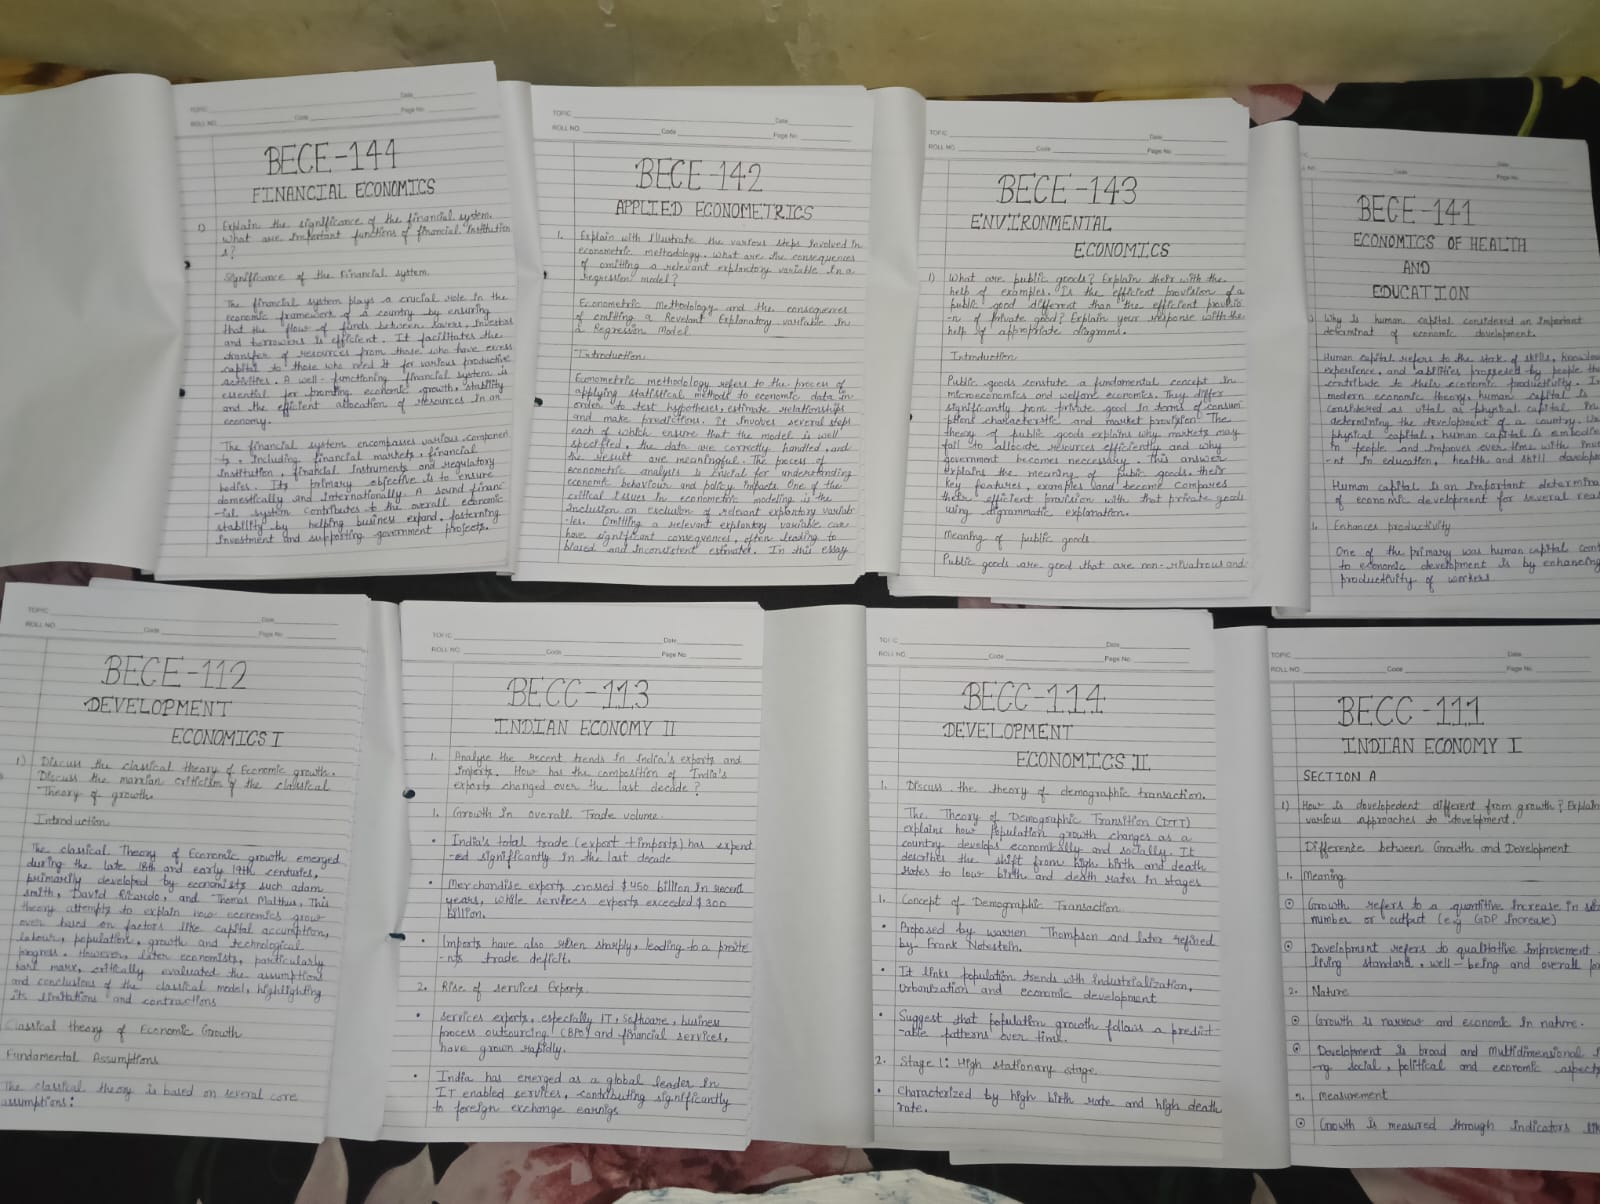 TOPIC
Date
ROLL NO.
Code
Page No.
BECE-144
FINANCIAL ECONOMICS
1) Explain the significance of the financial system.
What are important functions of financial Institution
s?
Significance of the Financial system.
The financial system plays a crucial role in the
economic framework of a country by ensuring
that the flow of funds between savers, investors
and borrowers is efficient. It facilitates the
transfer of resources from those who have excess
capital to those who need it for various productive
activities. A well-functioning financial system is
essential for promting economic growth, stability
and the efficient allocation of resources in an
economy.
The financial system encompasses various component
s, Including financial markets, financial
Institution, financial Instruments and regulatory
bodies. Its primary objective is to ensure
domestically and Internationally. A sound finan-
-cial system contributes to the overall economic
stability by helping business expand, fosterning
Investment and supporting government projects.
TOPIC
Date
ROLL NO.
Code
Page No.
BECE-142
APPLIED ECONOMETRICS
1. Explain with Illustrate the various steps Involved in
econometric methodology. What are the consequences
of omitting a relevant explantory variable In a
regression model?
Econometric Methodology and the consequences
of omitting a Revelant Explanatory variable In
a Regression Model
Introduction
Econometric methodology refers to the process of
applying statistical methods to economic data in
order to test hypotheses, estimate relationships
and make predictions. It Involves several steps
each of which ensure that the model is well
specified, the data are correctly handled, and
the result are meaningful. The process of
econometric analysis is crucial for understanding
economic behaviour and policy impacts. One of the
critical Issues In econometric modeling is the
Inclusion or exclusion of relevant explantory variab
-les. Omitting a relevant explantory variable can
have significant consequences, often leading to
biased and Inconsistent estimates. In this essay
TOPIC
Date
ROLL NO.
Code
Page No.
BECE-143
ENVIRONMENTAL
ECONOMICS
1) What are public goods? Explain their with the
help of examples. Is the efficient provision of a
public good different than the efficient provisio
-n of Private good? Explain your response with the
help of appropriate diagrams.
Introduction
Public goods constute a fundamental concept In
microeconomics and welfare economics. They differ
significantly from private good In terms of consum
ptions characterstic and market provision. The
theory of public goods explains why markets may
fail to allocate resources efficiently and why
government becomes necessary, this answer
explains the meaning of Public goods, their
key features, examples and become compares
their efficient provision with that private goods
using digrammatic explanation.
Meaning of public goods
Public goods are good that are non-rivalrous and
Date
Code
Page No.
BECE-141
ECONOMICS OF HEALTH
AND
EDUCATION
Why is human capital considered an Important
determinat of economic development.
Human capital refers to the stok of skills,
experience, and abilities prossesed by people
contribute to their economic productivity.
modern economic theory, human capital is
considered as vital as physical capital in
determining the development of a country.
physical capital, human capital is
in people and Improves over time with
-nt In education, health and skill
Human capital is an Important
of economic development for several
1. Enhances productivity
One of the primary was human capital
to economic development is by enhancing
productivity of workers
TOPIC
Date
ROLL NO.
Code
Page No.
BECE-112
DEVELOPMENT
ECONOMICS I
1) Discuss the classical theory of Economic growth.
Discuss the marxian criticism of the classical
Theory of growth.
Introduction
The classical Theory of Economic growth emerged
during the late 18th and early 19th centuries,
primarily developed by economists such adam
smith, David Ricardo, and Thomas Malthus, This
theory attempts to explain how economics grow
over based on factors like capital accumption,
labour, population, growth and technological
progress. However, later economists, particularly
karl marx, critically evaluated the assumptions
and conclusions of the classical model, highlighting
its limitations and contractions
Classical theory of Economic Growth
Fundamental Assumptions
The classical theory is based on several core
assumptions:
TOPIC
Date
ROLL NO.
Code
Page No.
BECC-113
INDIAN ECONOMY II
1. Analyse the recent trends in India's exports and
Imports. How has the composition of India's
exports changed over the last decade?
1. Growth In Overall Trade volume.
• India's total trade (export + imports) has expend
-ed significantly in the last decade
• Merchandise exports crossed $ 450 billion In recent
years, while services exports exceeded $ 300
billion.
• Imports have also risen sharply, leading to a
trade deficit.
2. Rise of services Exports
• Services exports, especially IT, Software, business
process outsourcing (BPO) and financial services,
have grown rapidly.
• India has emerged as a global leader in
IT enabled services, contributing significantly
to foreign exchange earnigs
TOPIC
Date
ROLL NO.
Code
Page No.
BECC-114
DEVELOPMENT
ECONOMICS II
1. Discuss the theory of demographic transaction.
The Theory of Demographic Transition (DTT)
explains how Population growth changes as a
country develops economically and socially. It
describes the shift from high birth and death
rates to low birth and death rates in stages
1. Concept of Demographic Transaction
• Proposed by warren Thompson and later refined
by Frank Notestein.
• It links population trends with industrialization,
Urbanization and economic development
• Suggest that population growth follows a predict
-able patterns over time.
2. Stage 1: High stationary stage
• Characterized by high birth rate and high death
rate.
TOPIC
Date
ROLL NO.
Code
Page No.
BECC-111
INDIAN ECONOMY I
SECTION A
1) How is developedent different from growth? Explain
various approaches to development.
Difference between Growth and Development
1. Meaning
Growth refers to a quantitive Increase in
number or output (e.g GDP Increase)
Development refers to qualitative Improvement
living standard, well-being and overall
2. Nature
Growth is narrow and economic In nature.
Development is broad and Multidimensional
-ng social, political and economic aspects
3. Measurement
Growth is measured through indicators